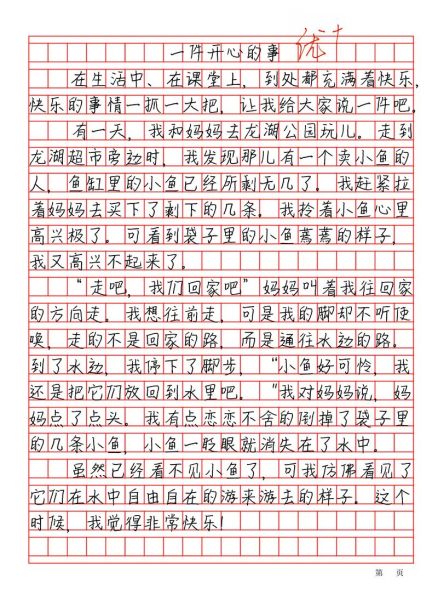 一件开心的事 优+
在生活中、在课堂上，到处都充满着快乐，
快乐的事情一抓一大把，让我给大家说一件吧。
有一天，我和妈妈去龙湖公园玩儿。走到
龙湖超市旁边时，我发现那儿有一个卖小鱼的
人，鱼缸里的小鱼已经所剩无几了。我赶紧拉
着妈妈去买下了剩下的几条。我拎着小鱼心里
高兴极了。可看到袋子里的小鱼蔫蔫的样子，
我又高兴不起来了。
“走吧，我们回家吧”妈妈叫着我往回家
的方向走。我想往前走，可是我的脚却不听使
唤，走的不是回家的路，而是通往水边的路。
到了水边，我停下了脚步，“小鱼好可怜，我
还是把它们放回到水里吧。”我对妈妈说，妈
妈点了点头。我有点恋恋不舍的倒掉了袋子里
的几条小鱼，小鱼一眨眼就消失在了水中。
虽然已经看不见小鱼了，可我仿佛看见了
它们在水中自由自在的游来游去的样子。这个
时候，我觉得非常快乐！
第 页